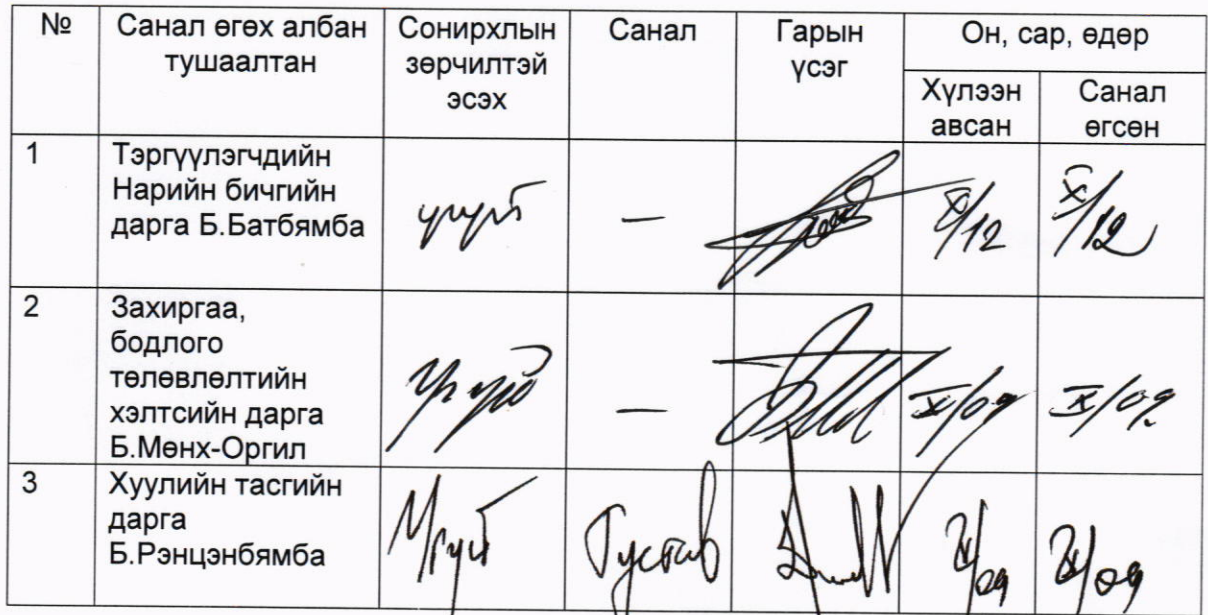 № Санал өгөх албан тушаалтан Сонирхлын зөрчилтэй эсэх Санал Гарын үсэг Он, сар, өдөр
Хүлээн авсан Санал өгсөн
1 Тэргүүлэгчдийн
Нарийн бичгийн
дарга Б.Батбямба
— X/12 X/12
2 Захиргаа,
бодлого
төлөвлөлтийн
хэлтсийн дарга
Б.Мөнх-Оргил
— X/09 X/09.
3 Хуулийн тасгийн
дарга
Б.Рэнцэнбямба